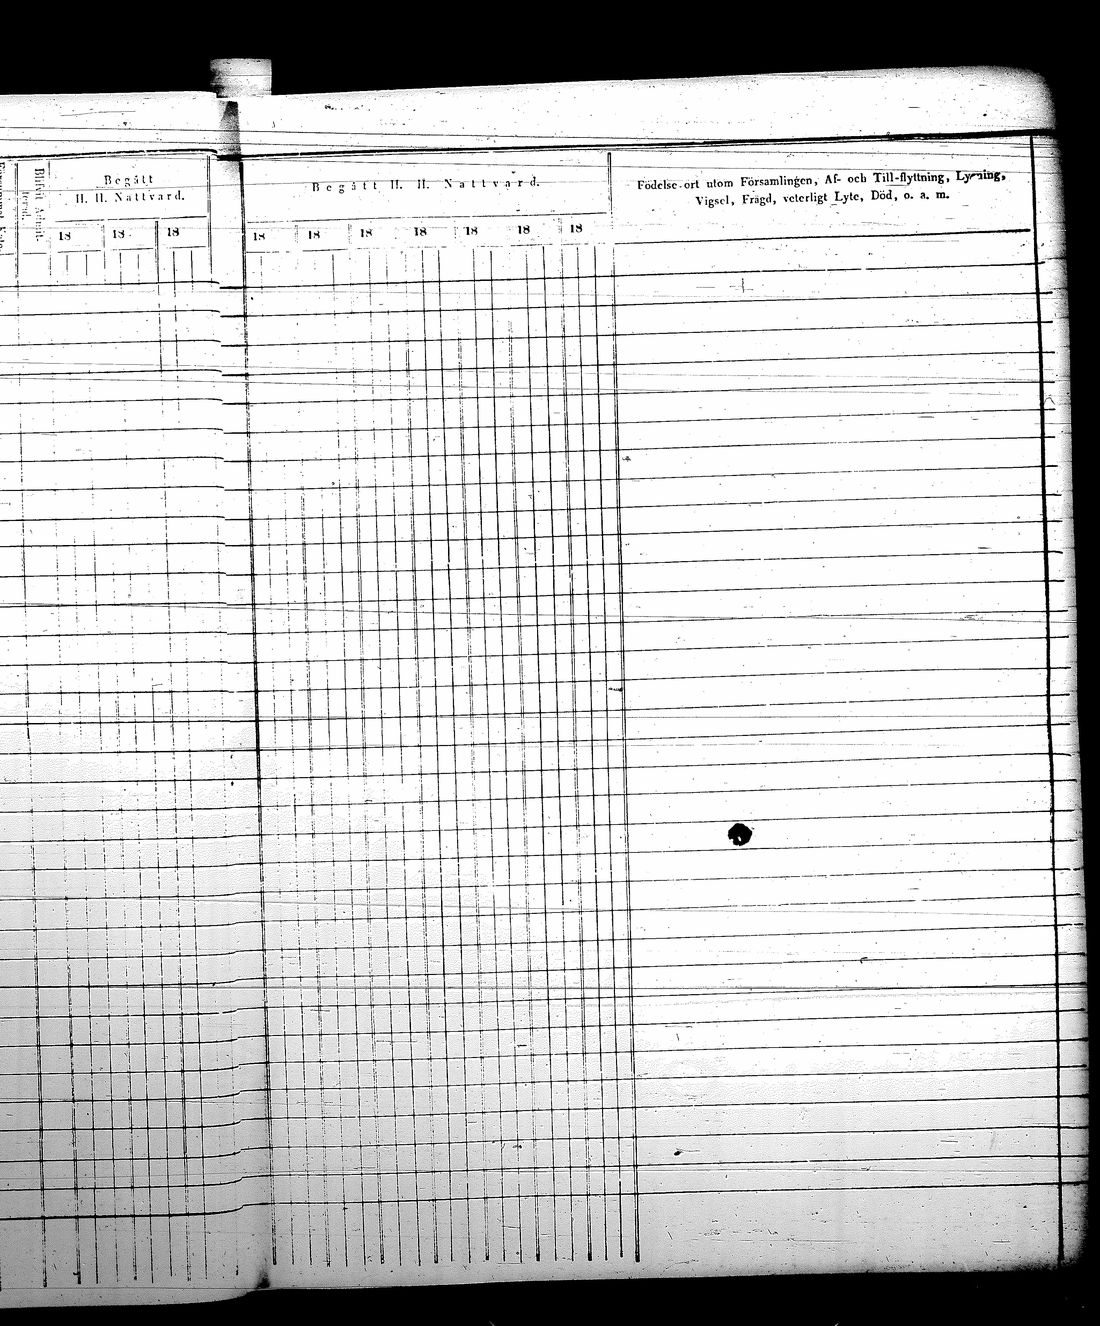 Blifvit Admitterad.
Begått
H. H. Nattvard.
18 18 18
Begått H. H. Nattvard.
18 18 18 18 18 18 18
Födelse-ort utom Församlingen, Af- och Till-flyttning, Lysning,
Vigsel, Frägd, veterligt Lyte, Död, o. a. m.